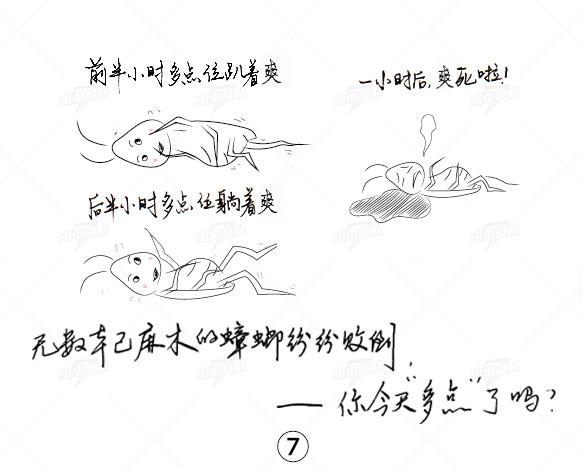 前半小时多点位趴着爽
一小时后,爽死啦!
后半小时多点位躺着爽
无数本已麻木的蟑螂纷纷败倒,
——你今天“多点”了吗?
7